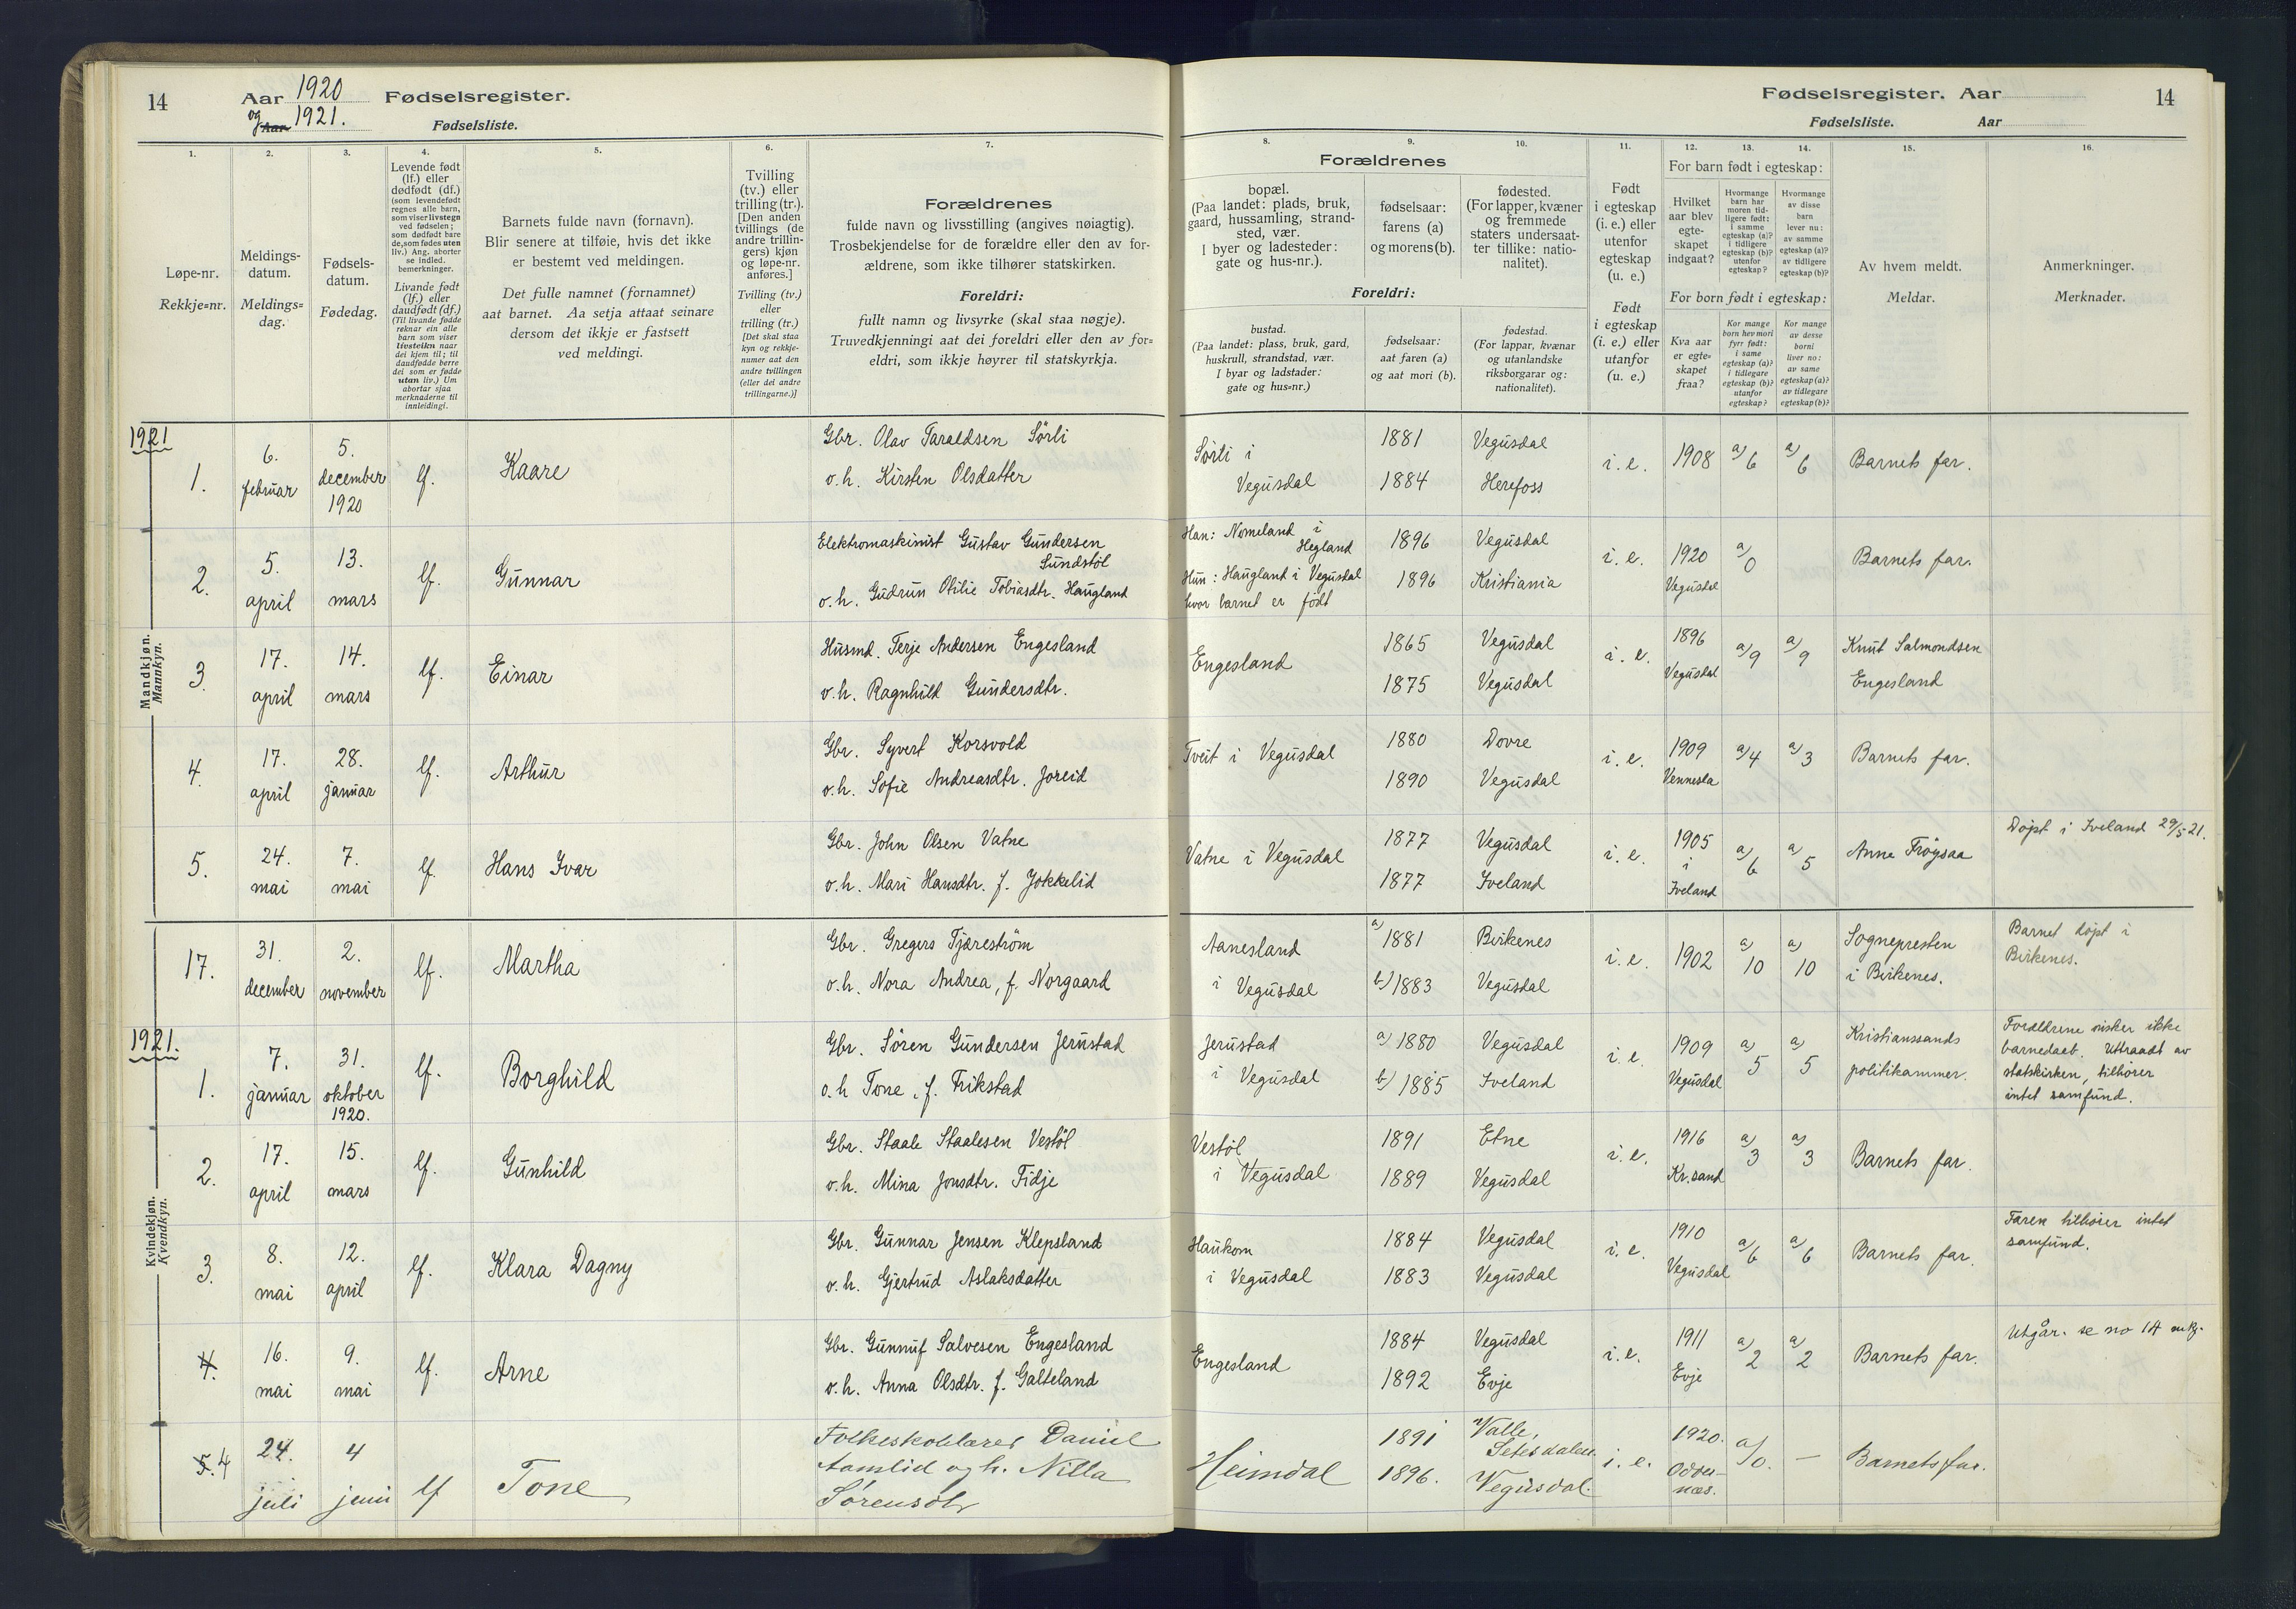 14
Aar 1920 Fødselsregister.
og Aar 1921.
Fødselsliste.
Fødselsregister. Aar
14
Fødselsliste. Aar
1.
2.
3.
4.
5.
6.
7.
8.
9.
10.
11.
12.
13.
14.
15.
16.
Løpe-nr.
Rekkje=nr.
Meldings-
datum.
Meldings=
dag.
Fødsels-
datum.
Fødedag.
Levende født
(lf.) eller
dødfødt (df.)
(som levendefødt
regnes alle barn,
som viser livstegn
ved fødselen;
som dødfødt bare
de, som fødes uten
liv.) Ang. aborter
se indled.
bemerkninger.
Livande født
(lf.) eller
daudfødt (df.)
(Til livande fødde
reknar ein alle
barn som viser
livsteikn naar
dei kjem til; til
daudfødde berre
dei som er fødde
utan liv.) Um
abortar sjaa
merknaderne til
innleidingi.
Barnets fulde navn (fornavn).
Blir senere at tilføie, hvis det ikke
er bestemt ved meldingen.
Det fulle namnet (fornamnet)
aat barnet. Aa setja attaat seinare
dersom det ikkje er fastsett
ved meldingi.
Tvilling
(tv.) eller
trilling (tr.).
[Den anden
tvillings (de
andre trillin-
gers) kjøn
og løpe-nr.
anføres.]
Tvilling (tv.)
eller
trilling (tr.)
[Det skal staa
kyn og rekkje-
numer aat den
andre tvillingen
(eller dei andre
trillingarne.)]
Forældrenes
fulde navn og livsstilling (angives nøiagtig).
Trosbekjendelse for de forældre eller den av for-
ældrene, som ikke tilhører statskirken.
Foreldri:
fullt namn og livsyrke (skal staa nøgje).
Truvedkjenningi aat dei foreldri eller den av for=
eldri, som ikkje høyrer til statskyrkja.
Forældrenes
bopæl.
(Paa landet: plads, bruk,
gaard, hussamling, strand-
sted, vær.
I byer og ladesteder:
gate og hus-nr.).
fødselsaar:
farens (a)
og morens (b).
fødested.
(For lapper, kvæner
og fremmede
staters undersaat-
ter tillike: natio-
nalitet).
Foreldri:
bustad.
(Paa landet: plass, bruk, gard,
huskrull, strandstad, vær.
I byar og ladstader:
gate og hus=nr.)
fødselsaar:
aat faren (a)
og aat mori (b).
fødestad.
(For lappar, kvænar
og utanlandske
riksborgarar og:
nationalitet).
Født
i egteskap
(i. e.) eller
utenfor
egteskap
(u. e.)
Født
i egteskap
(i. e.) eller
utanfor
(u. e.)
For barn født i egteskap:
Hvilket
aar blev
egte-
skapet
indgaat?
Hvormange
barn har
moren tid-
ligere født:
i samme
egteskap (a)?
i tidligere
egteskap (b)?
utenfor
egteskap?
Hvormange
av disse
barn
lever nu:
av samme
egteskap (a)?
av tidligere
egteskap (b)?
For born født i egteskap:
Kva aar
er egte=
skapet
fraa?
Kor mange
born hev mori
fyrr født:
i same
egteskap (a)?
i tidlegare
egteskap (b)?
utanfor
egteskap?
Kor mange
av desse
borni
liver no:
av same
egteskap (a)?
av tidlegare
egteskap (b)?
Av hvem meldt.
Meldar.
Anmerkninger.
Merknader.
Mandkjøn.
Mannkyn.
1921
1. 6. februar 5. december 1920 lf. Kaare
Gbr. Olav Taraldsen Sörli
o. h. Kirsten Olsdatter
Sörli i Vegusdal
1881 Vegusdal
1884 Herefoss
i. e. 1908 a) 6 a) 6 Barnets far.
2. 5. april 13. mars lf. Gunnar
Elektromaskinist Gustav Gundersen
Sundstöl
o. h. Gudrun Otilie Tobiasdtr. Haugland
Han: Nomeland i
Hegland
Hun: Haugland i Vegusdal
hvor barnet er født
1896 Vegusdal
1896 Kristiania
i. e. 1920 Vegusdal a) 0 Barnets far.
3. 17. april 14. mars lf. Einar
Husmd. Terje Andersen Engesland
o. h. Ragnhild Gundersdtr.
Engesland
1865 Vegusdal
1875 Vegusdal
i. e. 1896 Vegusdal a) 9 a) 9 Knut Salmondsen
Engesland
4. 17. april 28. januar lf. Arthur
Gbr. Syvert Korsvold
o. h. Sofie Andreasdtr. Joreid
Tveit i Vegusdal
1880 Dovre
1890 Vegusdal
i. e. 1909 Vennesla a) 4 a) 3 Barnets far.
5. 24. mai 7. mai lf. Hans Ivar
Gbr. John Olsen Vatne
o. h. Mari Hansdtr. f. Jokkelid
Vatne i Vegusdal
1877 Vegusdal
1877 Iveland
i. e. 1905 i Iveland a) 6 a) 5 Anne Fröysaa
Döpt i Iveland 29/5 21.
Kvindekjøn.
Kvendkyn.
17. 31. december 2. november lf. Martha
Gbr. Gregers Tjæreström
o. h. Nora Andrea, f. Norgaard
Aanesland
i Vegusdal
a) 1881 Birkenes
b) 1883 Vegusdal
i. e. 1902 a) 10 a) 10 Sognepresten
i Birkenes.
Barnet döpt i
Birkenes.
1921.
1. 7. januar 31. oktober 1920. lf. Borghild
Gbr. Sören Gundersen Jerustad
o. h Tone, f. Frikstad
Jerustad
i Vegusdal
a) 1880 Vegusdal
b) 1885 Iveland
i. e. 1909 Vegusdal a) 5 a) 5 Kristianssands
politikammer.
Forældrene önsker ikke
barnedaab. Uttraadt av
statskirken, tilhörer
intet samfund.
2. 17. april 15. mars lf. Gunhild
Gbr. Staale Staalesen Vestöl
o. h. Mina Jonsdtr. Fidje
Vestöl
i Vegusdal
1891 Etne
1889 Vegusdal
i. e. 1916 Kr.sand a) 3 a) 3 Barnets far.
3. 8. mai 12. april lf. Klara Dagny
Gbr. Gunnar Jensen Klepsland
o. h. Gjertrud Aslaksdatter
Haukom
i Vegusdal
1884 Vegusdal
1883 Vegusdal
i. e. 1910 Vegusdal a) 6 a) 6 Barnets far.
Faren tilhörer intet
samfund.
4. 16. mai 9. mai lf. Arne
Gbr. Gunnuf Salvesen Engesland
o. h. Anna Olsdtr. f. Galteland
Engesland
1884 Vegusdal
1892 Evje
i. e. 1911 Evje a) 2 a) 2 Barnets far.
Utgår. se no 14
5. 4 24. juli 4 juni lf Tone
Folkeskolelærer Daniel
Aamlid og h. Nilla
Sörensdtr
Heimdal
1891 Valle,
Setesdalen.
1896. Vegusdal.
i. e. 1920. Odder-
næs. a/0. — Barnets far.